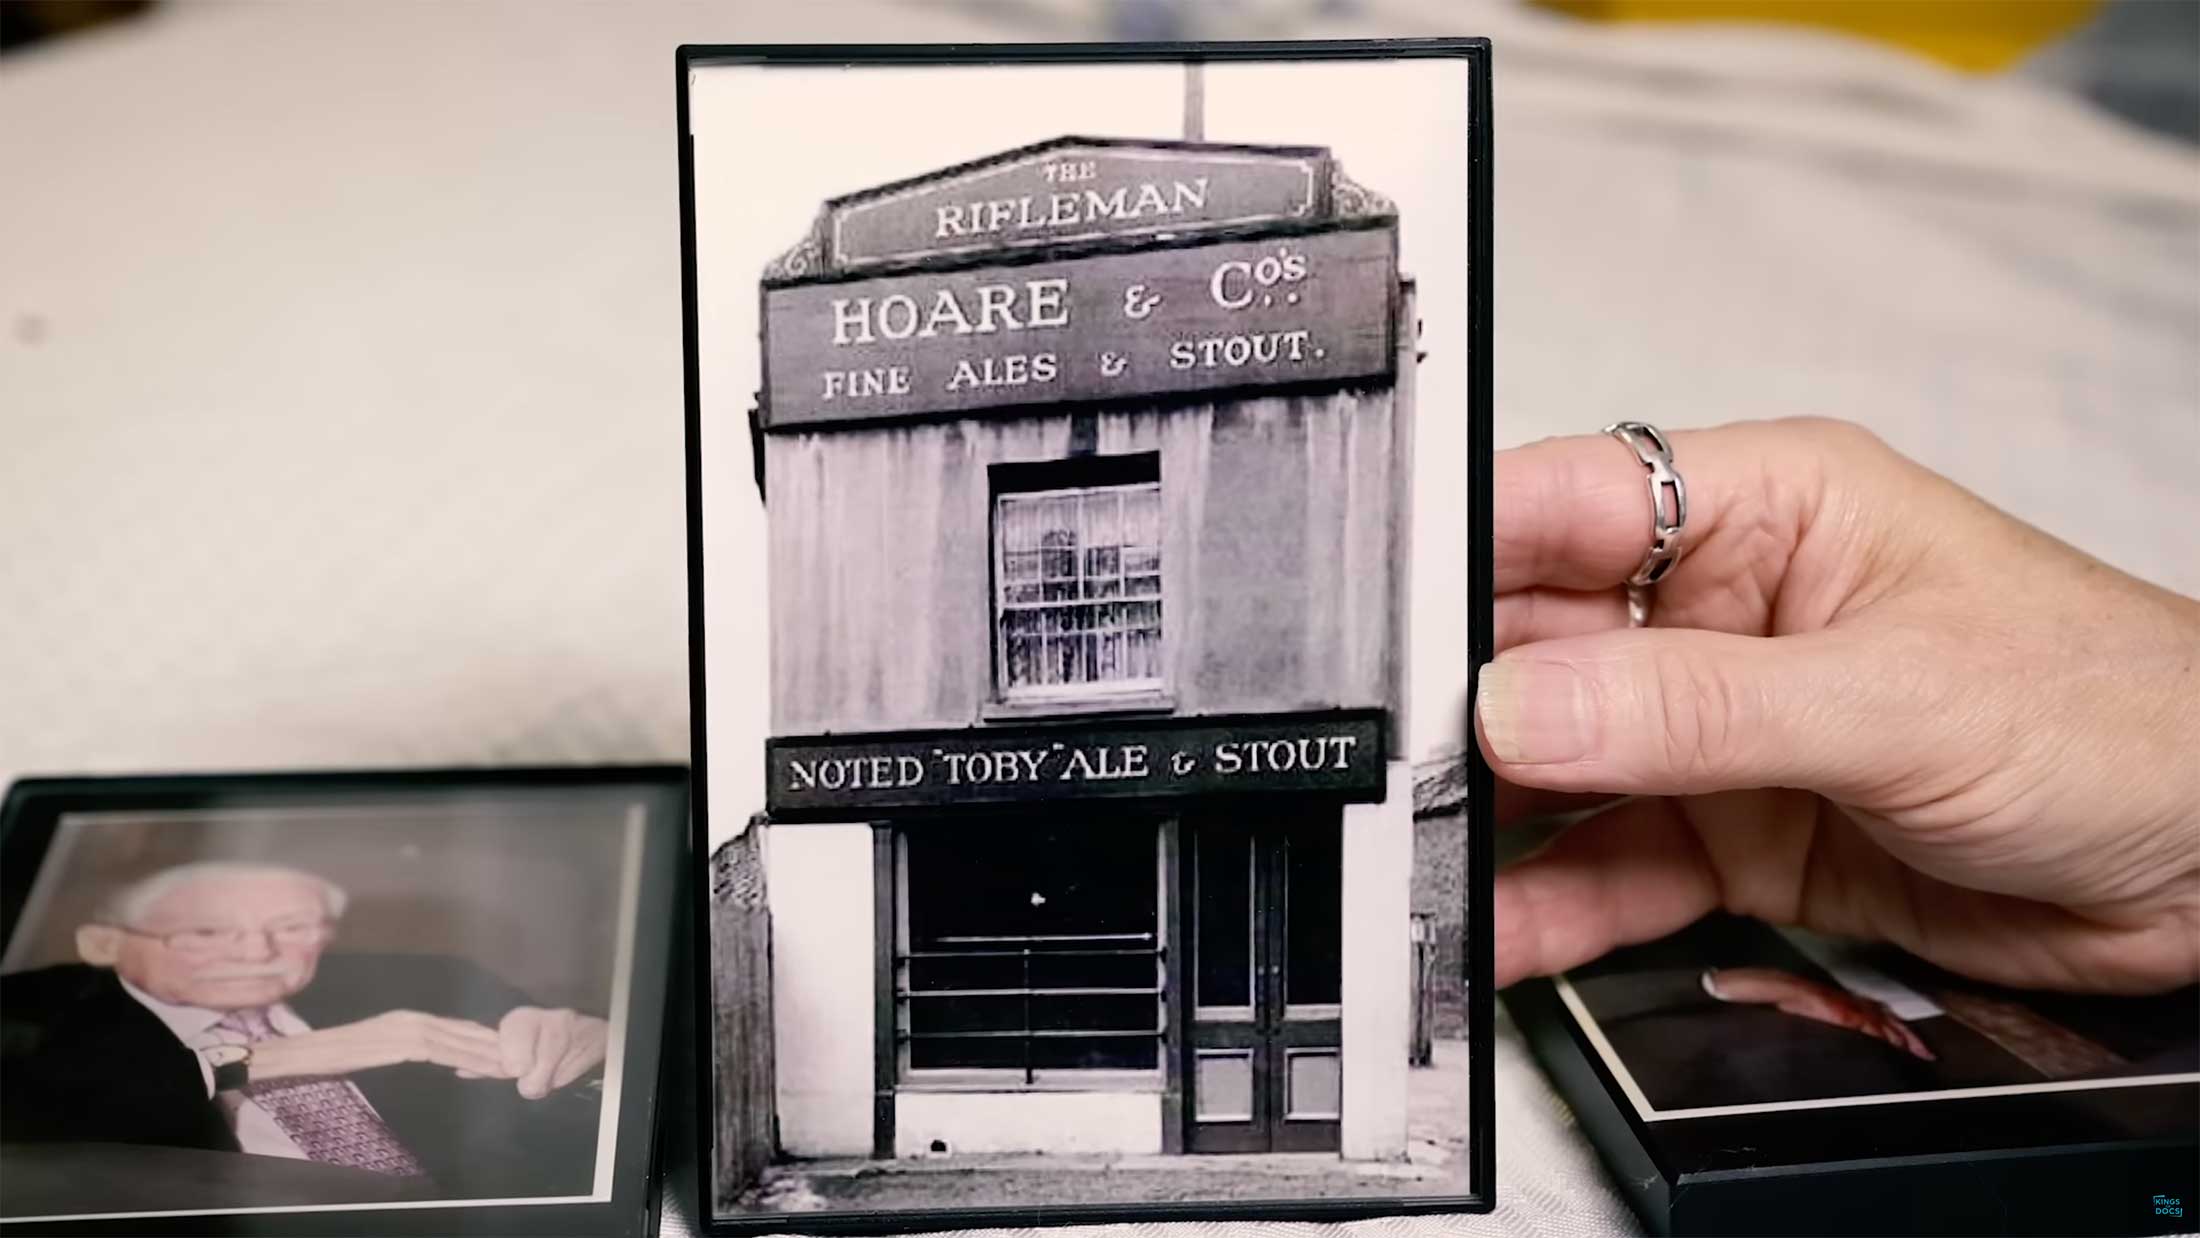 THE
RIFLEMAN
HOARE & Co's.
FINE ALES & STOUT.
NOTED "TOBY" ALE & STOUT
KINGS
DOCS